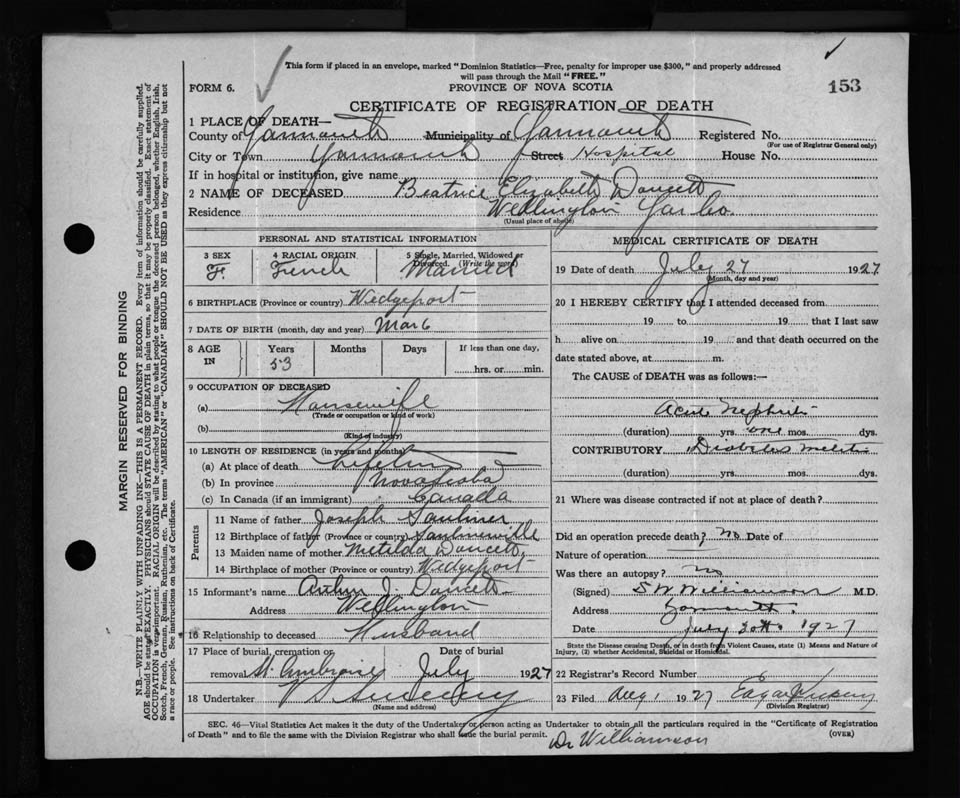 This form if placed in an envelope, marked "Dominion Statistics—Free, penalty for improper use $300," and properly addressed
will pass through the Mail "FREE."
FORM 6.
PROVINCE OF NOVA SCOTIA
153
CERTIFICATE OF REGISTRATION OF DEATH
1 PLACE OF DEATH—
County of Yarmouth Municipality of Yarmouth Registered No.
(For use of Registrar General only)
City or Town Yarmouth Street Hospital House No.
If in hospital or institution, give name
2 NAME OF DECEASED Beatrice Elizabeth Doucett
Residence Wellington Yar Co.
(Usual place of abode)
PERSONAL AND STATISTICAL INFORMATION
3 SEX F. 4 RACIAL ORIGIN French 5 Single, Married, Widowed or Divorced. (Write the word) Married
6 BIRTHPLACE (Province or country) Wedgeport
7 DATE OF BIRTH (month, day and year) Mar 6
8 AGE IN Years 53 Months Days If less than one day, hrs. or min.
9 OCCUPATION OF DECEASED
(a) Housewife
(Trade or occupation or kind of work)
(b)
(Kind of industry)
10 LENGTH OF RESIDENCE (in years and months)
(a) At place of death Lifetime
(b) In province Nova Scotia
(c) In Canada (if an immigrant) Canada
Parents
11 Name of father Joseph Saulnier
12 Birthplace of father (Province or country) Saulnierville
13 Maiden name of mother Metilda Doucett
14 Birthplace of mother (Province or country) Wedgeport
15 Informant's name Arthur J. Doucett
Address Wellington
16 Relationship to deceased Husband
17 Place of burial, cremation or removal St. Ambroise Date of burial July 1927
18 Undertaker V S Sweeny
(Name and address)
MEDICAL CERTIFICATE OF DEATH
19 Date of death July 27 1927
(Month, day and year)
20 I HEREBY CERTIFY that I attended deceased from
19 to 19 that I last saw
h alive on 19 and that death occurred on the
date stated above, at m.
The CAUSE of DEATH was as follows:—
Acute Nephritis
(duration) yrs. one mos. dys.
CONTRIBUTORY Diabetes Mellitus
(duration) yrs. mos. dys.
21 Where was disease contracted if not at place of death?
Did an operation precede death? no Date of
Nature of operation
Was there an autopsy? no
(Signed) S W Williamson M.D.
Address Yarmouth.
Date July 30th 1927
State the Disease causing Death, or in death from Violent Causes, state (1) Means and Nature of
Injury, (2) whether Accidental, Suicidal or Homicidal.
22 Registrar's Record Number
23 Filed Aug 1 1927 Edgar
(Division Registrar)
SEC. 46—Vital Statistics Act makes it the duty of the Undertaker or person acting as Undertaker to obtain all the particulars required in the "Certificate of Registration
of Death" and to file the same with the Division Registrar who shall issue the burial permit.
(OVER)
Dr Williamson
MARGIN RESERVED FOR BINDING
N.B.—WRITE PLAINLY WITH UNFADING INK—THIS IS A PERMANENT RECORD. Every item of information should be carefully supplied.
AGE should be stated EXACTLY. PHYSICIANS should STATE CAUSE OF DEATH in plain terms, so that it may be properly classified. Exact statement of
OCCUPATION is very important. RACIAL ORIGIN will be described by stating to what people or tongue the deceased person belonged, whether English, Irish,
Scotch, French, German, Russian, Ruthenian, etc. The terms "AMERICAN" or "CANADIAN" SHOULD NOT BE USED as they express citizenship but not
a race or people. See instructions on back of Certificate.